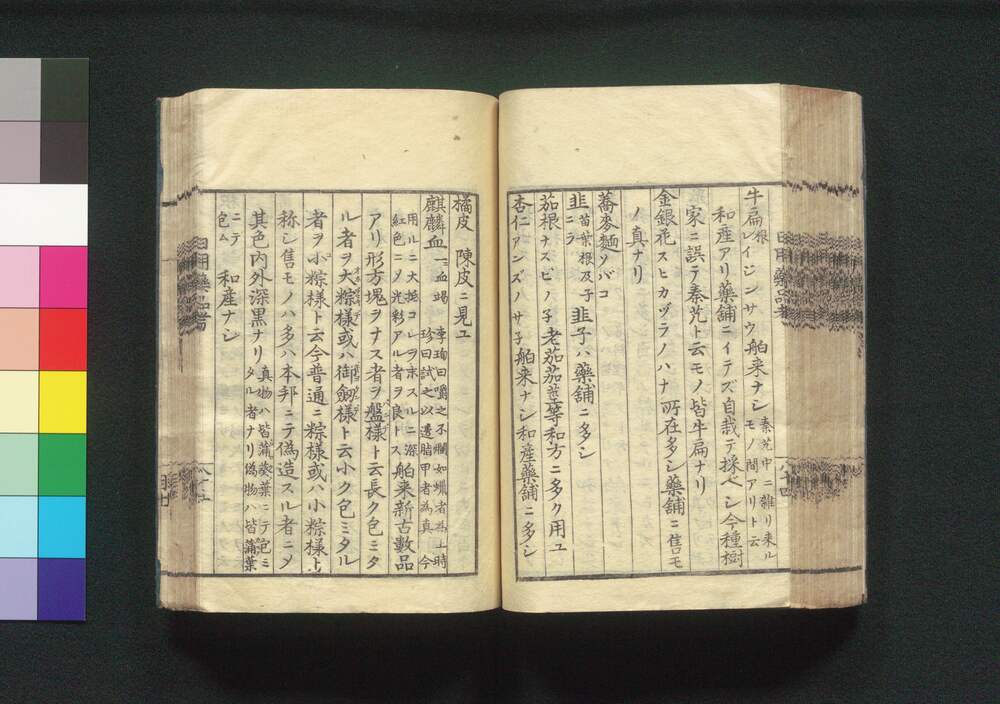 牛扁根レイジンサウ舶来ナシ秦艽中ニ雑リ来ルモノ間アリト云
和産アリ藥舗ニイテズ自哉テ採ベシ今種樹
家ニ誤テ秦艽ト云モノ皆牛扁ナリ
金銀花スヒカヅラノハナ所在多シ藥舗ニ售モ
ノ真ナリ
蕎麥麺ソバコ
韭ニラ苗葉根及子韭子ハ藥舗ニ多シ
茄根ナスビノ子老茄茄蒂等和方ニ多ク用ユ
杏仁アンズノサ子舶来ナシ和産藥舗ニ多シ
橘皮 陳皮ニ見ユ
麒麟血一血竭 李珣曰嚼之不爛如蝋者為上時珍曰試之以透指甲者為真今
用ルニ大抵コレヲ末スルニ深紅色ニシテ光彩アル者ヲ良トス舶来新古數品
アリ形方塊ヲナス者ヲ盤様ト云長ク包ミタ
ル者ヲ大粽様或ハ御劔様ト云小ク包ミタル
者ヲ小粽様ト云今普通ニ粽様或ハ小粽様ト
称シ售モノハ多ハ本邦ニテ偽造スル者ニメ
其色内外深黒ナリ真物ハ皆蒲葵葉ニテ包ミタル者ナリ偽物ハ皆蒲葉
ニテ包ム 和産ナシ